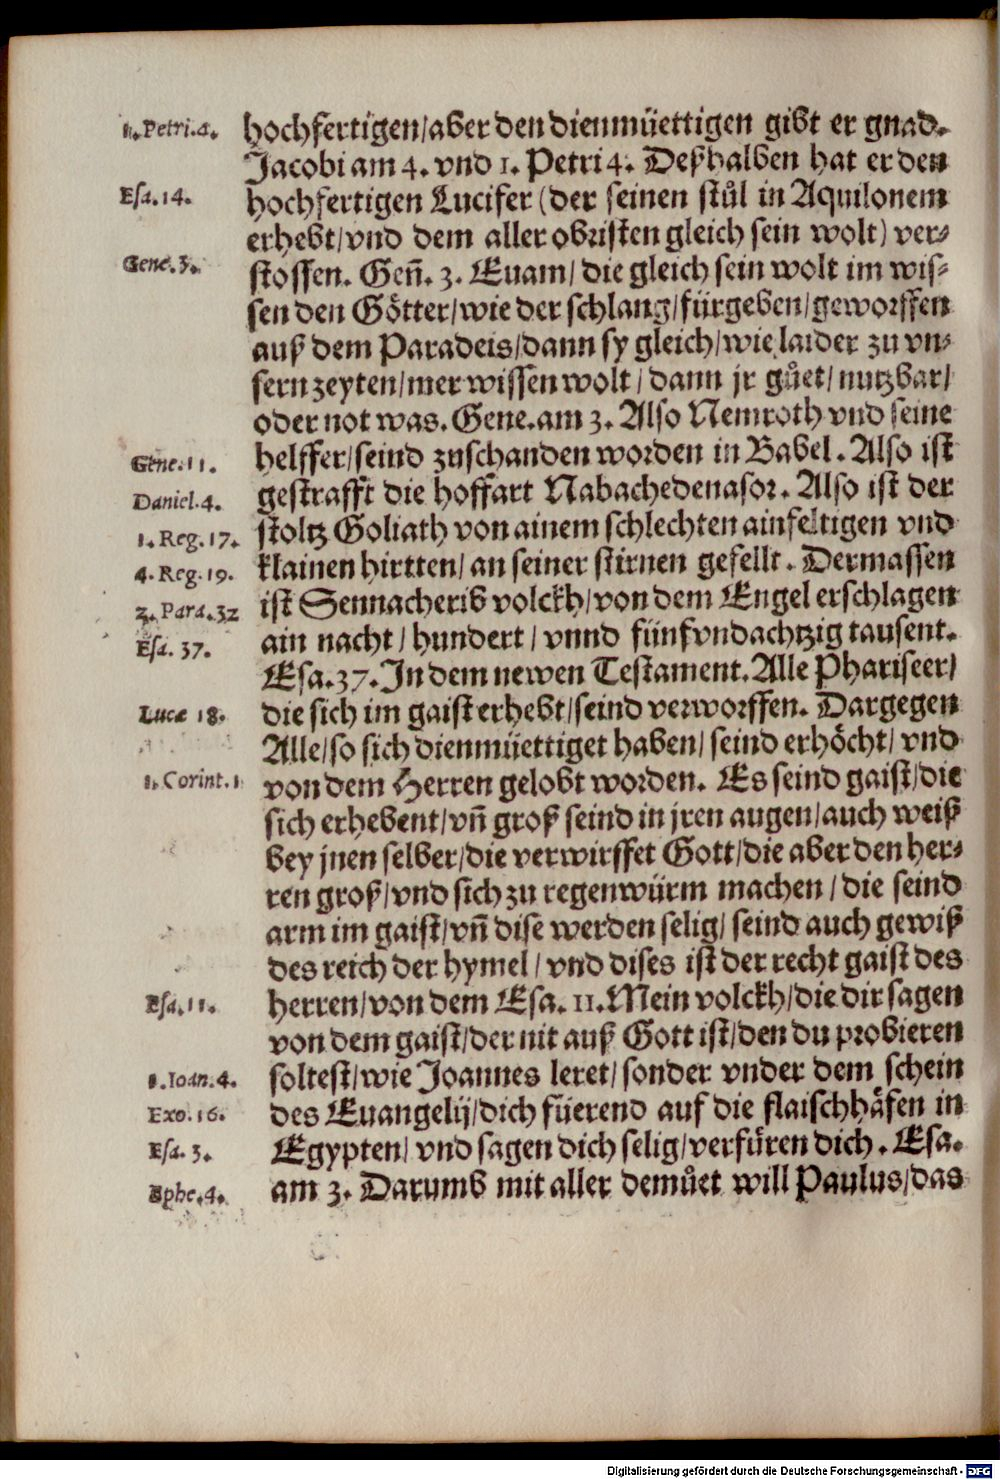 1. Petri. 4.
hochfertigen/aber den dienmüettigen gibt er gnad.
Jacobi am 4. vnd 1. Petri 4. Deßhalben hat er den
Esa. 14.
hochfertigen Lucifer (der seinen stůl in Aquilonem
erhebt/vnd dem aller obristen gleich sein wolt) ver⸗
Gene. 3.
stossen. Geñ. 3. Euam/ die gleich sein wolt im wis⸗
sen den Götter/wie der schlang/fürgeben/geworffen
auß dem Paradeis/dann sy gleich/wie laider zu vn⸗
sern zeyten/mer wissen wolt/ dann jr gůet/ nutzbar/
oder not was. Gene. am 3. Also Nemroth vnd seine
Gene. 11.
helffer/seind zuschanden worden in Babel. Also ist
Daniel. 4.
gestrafft die hoffart Nabachedenasor. Also ist der
1. Reg. 17.
stoltz Goliath von ainem schlechten ainfeltigen vnd
4. Reg. 19.
klainen hirtten/ an seiner stirnen gefellt. Dermassen
2. Para. 32
ist Sennacherib volckh/von dem Engel erschlagen
Esa. 37.
ain nacht/ hundert/ vnnd fünfvndachtzig tausent.
Esa. 37. In dem newen Testament. Alle Phariseer/
Lucæ 18.
die sich im gaist erhebt/seind verworffen. Dargegen
Alle/so sich dienmüettiget haben/ seind erhöcht/ vnd
1. Corint. 1
von dem Herren gelobt worden. Es seind gaist/die
sich erhebent/vñ groß seind in jren augen/auch weiß
bey jnen selber/die verwirffet Gott/die aber den her⸗
ren groß/vnd sich zu regenwürm machen/ die seind
arm im gaist/vñ dise werden selig/ seind auch gewiß
des reich der hymel/ vnd dises ist der recht gaist des
Esa. 11.
herren/von dem Esa. 11. Mein volckh/die dir sagen
von dem gaist/der nit auß Gott ist/den du probieren
1. Ioan. 4.
soltest/wie Joannes leret/ sonder vnder dem schein
Exo. 16.
des Euangelij/dich füerend auf die flaischhäfen in
Esa. 3.
Egypten/ vnd sagen dich selig/verfüren dich. Esa.
Ephe. 4.
am 3. Darumb mit aller demůet will Paulus/das
Digitalisierung gefördert durch die Deutsche Forschungsgemeinschaft - DFG